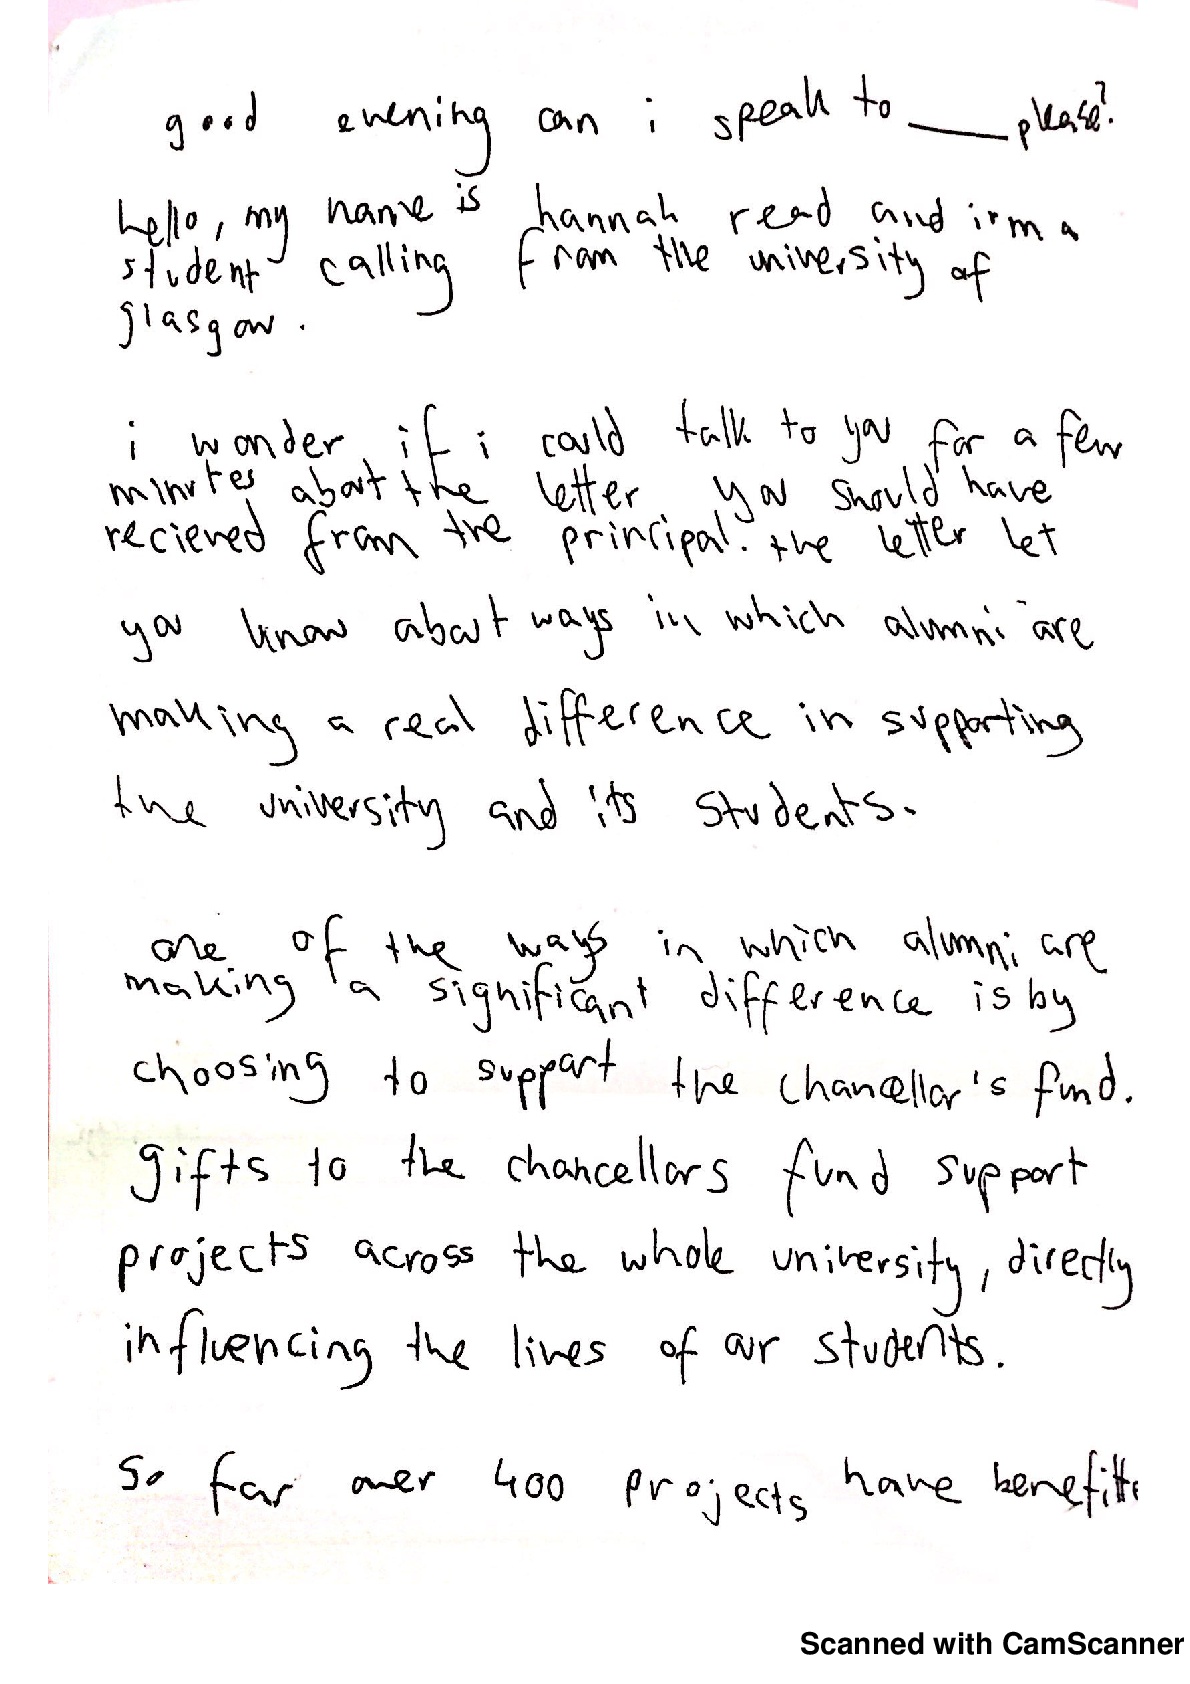 good evening can i speak to ____ please?
hello, my name is hannah read and i'm a
student calling from the university of
glasgow.
i wonder if i could talk to you for a few
minutes about the letter you should have
recieved from the principal. the letter let
you know about ways in which alumni are
making a real difference in supporting
the university and its students.
one of the ways in which alumni are
making a significant difference is by
choosing to support the chancellor's fund.
gifts to the chancellors fund support
projects across the whole university, directly
influencing the lives of our students.
So far over 400 projects have benefitte
Scanned with CamScanner